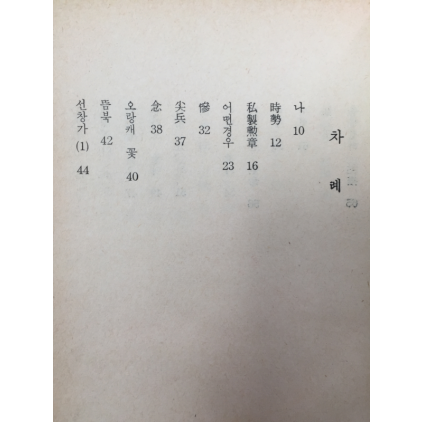 차 례
나 10
時勢 12
私製勲章 16
어떤경우 23
慘 32
尖兵 37
念 38
오랑캐 꽃 40
뜸북 42
선창가 (1) 44